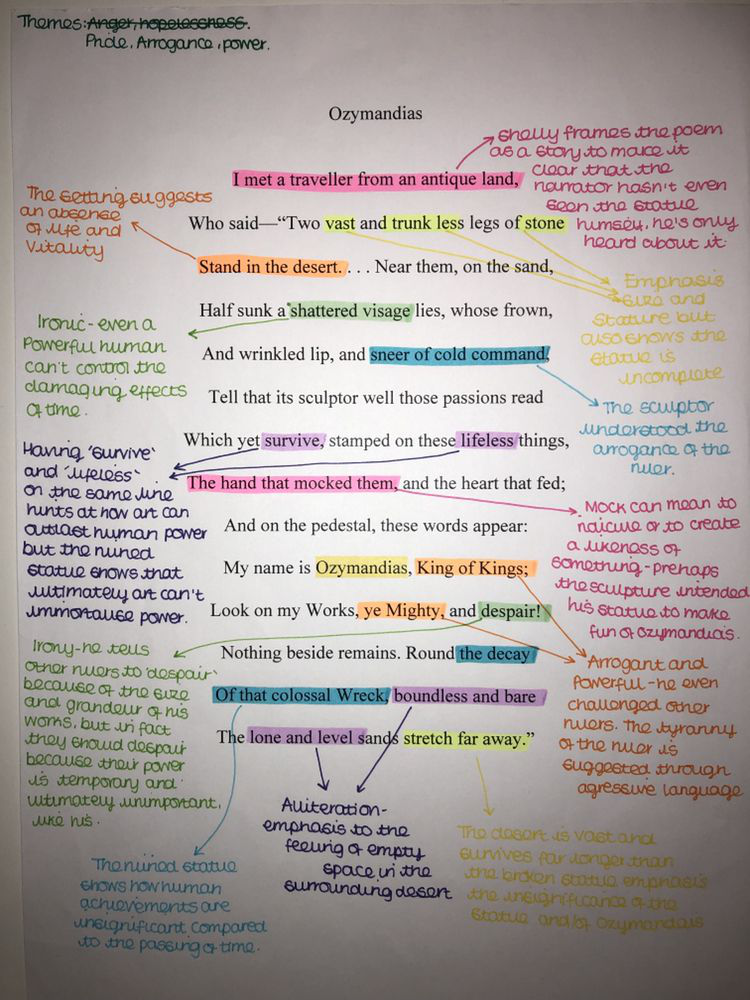 Themes: Anger, hopelessness.
Pride, Arrogance, power.
Ozymandias
I met a traveller from an antique land,
Who said—“Two vast and trunk less legs of stone
Stand in the desert. . . . Near them, on the sand,
Half sunk a shattered visage lies, whose frown,
And wrinkled lip, and sneer of cold command,
Tell that its sculptor well those passions read
Which yet survive, stamped on these lifeless things,
The hand that mocked them, and the heart that fed;
And on the pedestal, these words appear:
My name is Ozymandias, King of Kings;
Look on my Works, ye Mighty, and despair!
Nothing beside remains. Round the decay
Of that colossal Wreck, boundless and bare
The lone and level sands stretch far away.”
Shelly frames the poem
as a story to make it
clear that the
narrator hasn't even
seen the statue
himself, he's only
heard about it.
The setting suggests
an absence
of life and
vitality
Emphasis
size and
stature but
also shows the
statue is
incomplete
Ironic - even a
Powerful human
can't control the
damaging effects
of time.
The sculptor
understood the
arrogance of the
ruler.
Having 'survive'
and 'lifeless'
on the same line
hints at how art can
outlast human power
but the ruined
statue shows that
ultimately art can't
immortalise power.
Mock can mean to
ridicule or to create
a likeness of
something - prehaps
the sculpture intended
his statue to make
fun of Ozymandias.
Irony - he tells
other rulers to 'despair'
because of the size
and grandeur of his
works, but in fact
they should despair
because their power
is temporary and
ultimately unimportant,
like his.
Arrogant and
Powerful - he even
challenged other
rulers. The tyranny
of the ruler is
suggested through
agressive language
Alliteration -
emphasis to the
feeling of empty
space in the
surrounding desert
The ruined statue
shows how human
achievements are
insignificant compared
to the passing of time.
The desert is vast and
survives far longer than
the broken statue emphasis
the insignificance of the
statue and/of Ozymandias